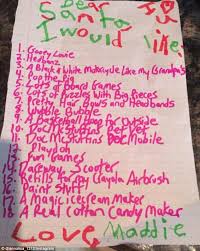 Dear
Santa
I would like:
1. Gooey Louie
2. Hedbanz
3. A Black & White Motorcycle Like My Grandpa's
4. Pop the Pig
5. Lots of Board Games
6. Puzzles With Big Pieces
7. Pretty Hair Bows and Headbands
8. Wubble Bubble
9. A Basketball Hoop for outside
10. Doc McStuffins Pet Vet
11. Doc McStuffins DocMobile
12. Playdoh
13. Fun Games
14. Razor Scooter
15. Refills for My Crayola Airbrush
16. Paint Stuff
17. A Magic ice cream Maker
18. A Real Cotton Candy Maker
Love, Maddie